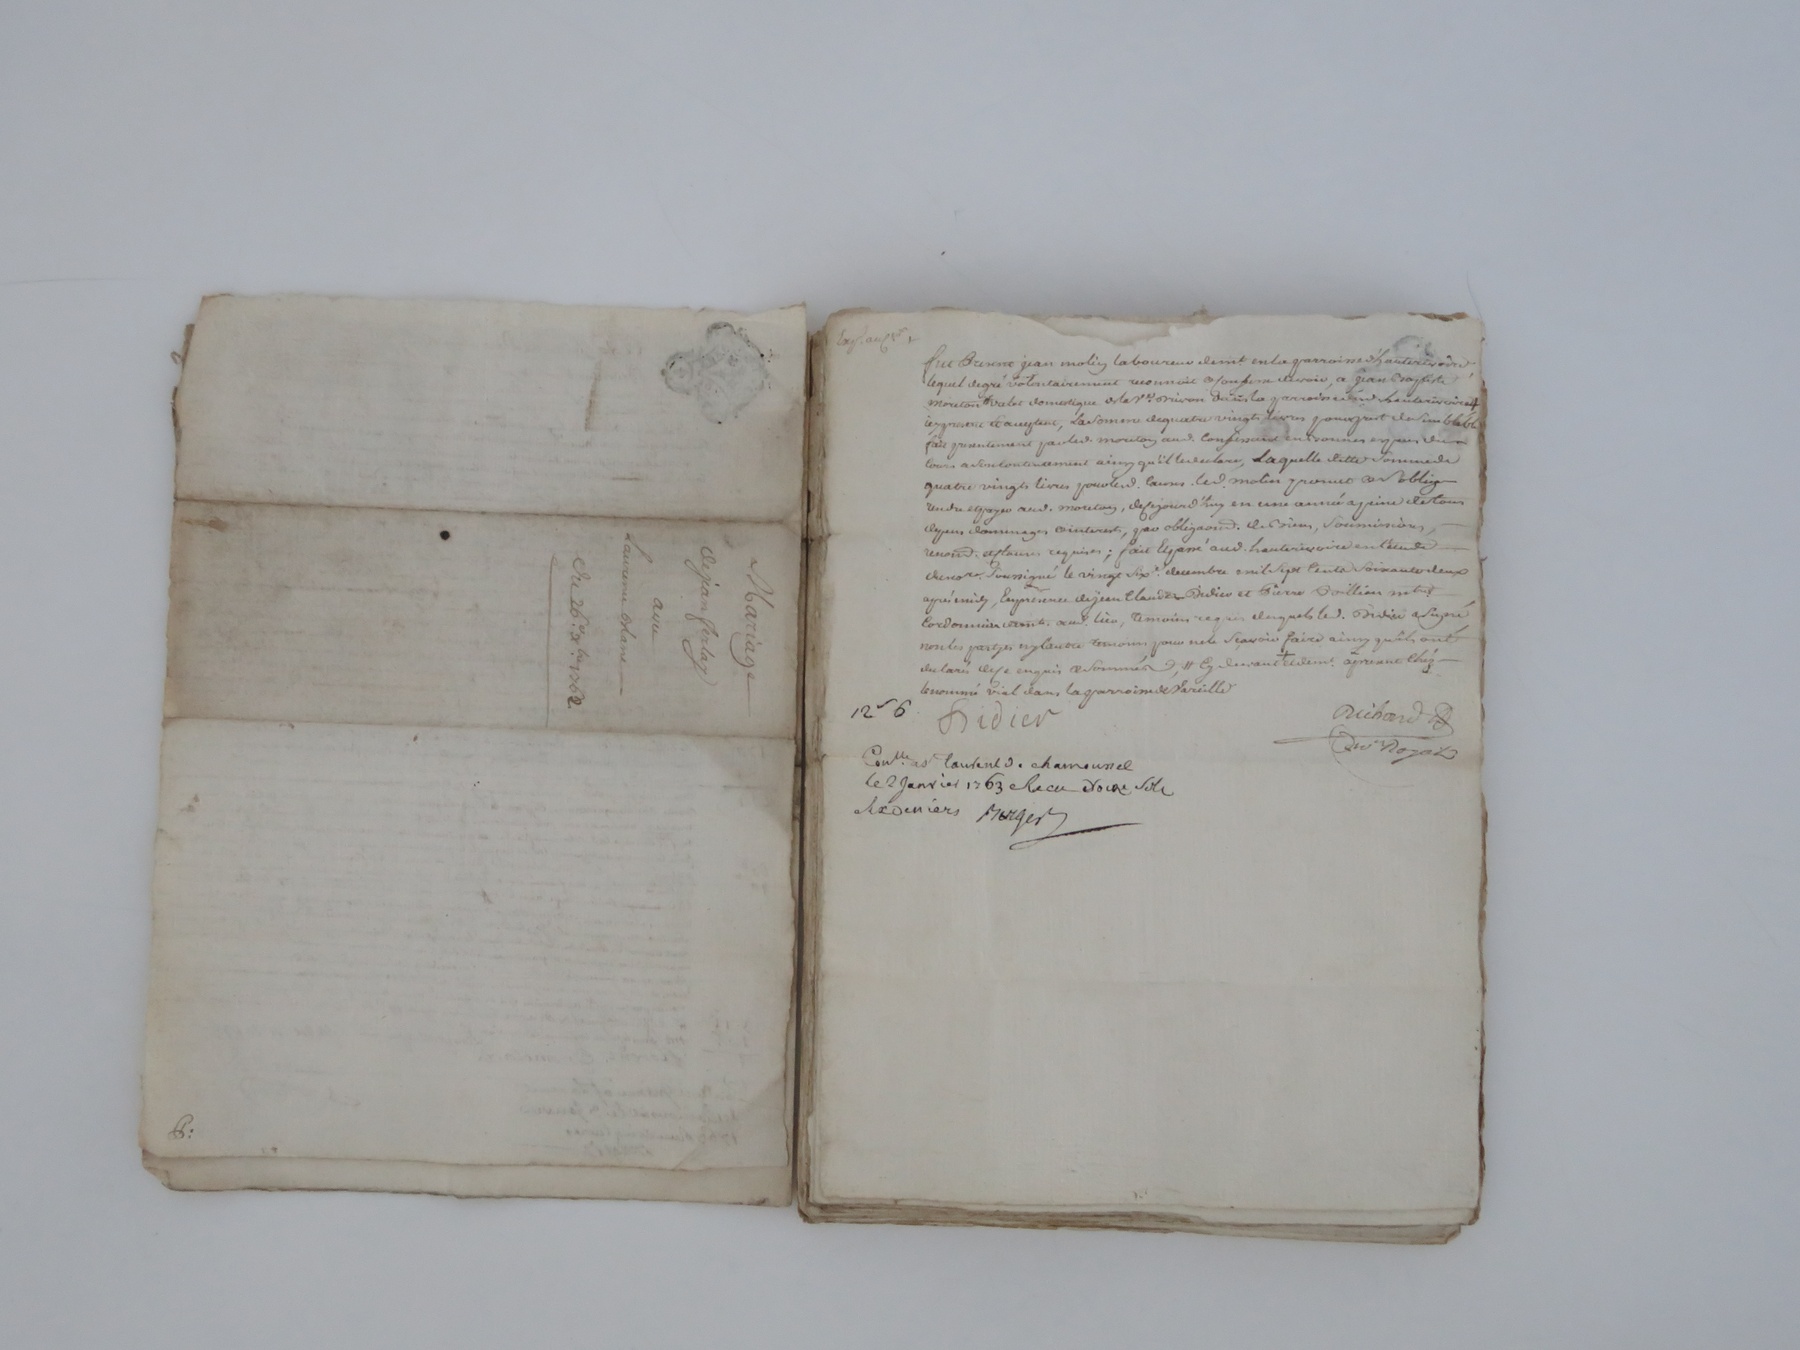 Mariage
de jean ferlay
avec
Laurence blanc
du 26e. xbre 1762
6:
fut Present jean molin laboureur demt. en la parroisse d'hauterivoire
lequel degré volontairement reconnoit & confesse devoir, a jean Baptiste
moreton valet domestique de la parroisse dud hauterivoire
icy present & acceptant, La somme dequatre vingts livres pour prest de semblable
fait presentement par led moreton aud. Confessant en bonnes especes du
cours a son contentement ainsy qu'il le declare, Laquelle ditte somme de
quatre vingts livres pour led. causes led. molin promet & s'oblige
rendre et payer aud. moreton, dece jourd'huy en une année a peine de tous
depens dommages & interest, par obligaond. de biens, soumissions,
renond. et clauses requises; fait & passé aud. hauterivoire en l'etude
du nore. soussigné le vingt sixe. decembre mil sept cents soixante deux
apres midy, En presence de jean Claude Didier et Pierre
Cordonnier aud. lieu, temoins requis desquels led. Didier a signé
non les partyes ny l'autre temoin pour ne le sçavoir faire ainsy qu'ils ont
declaré de ce enquis & sommés, Et cy devant & demt. a present chez
le nommé Vial dans la parroisse de
12s 6 Didier
Richard
Nore Royal
Conlle. a St Laurent D. chamousset
le 2 Janvier 1763 Recu Douze Sols
Six Deniers Berger